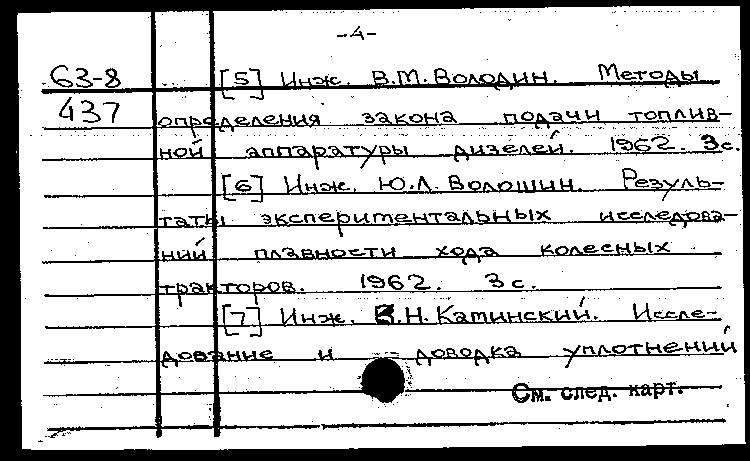 -4-
63-8 [5] Инж. В.М.Володин. Методы
437 определения закона подачи топлив-
ной аппаратуры дизелей. 1962. 3с.
[6] Инж. Ю.Л.Волошин. Резуль-
таты экспериментальных исследова-
ний плавности хода колесных
тракторов. 1962. 3с.
[7] Инж. .Н.Катинский. Иссле-
дование и доводка уплотнений
См. след. карт.